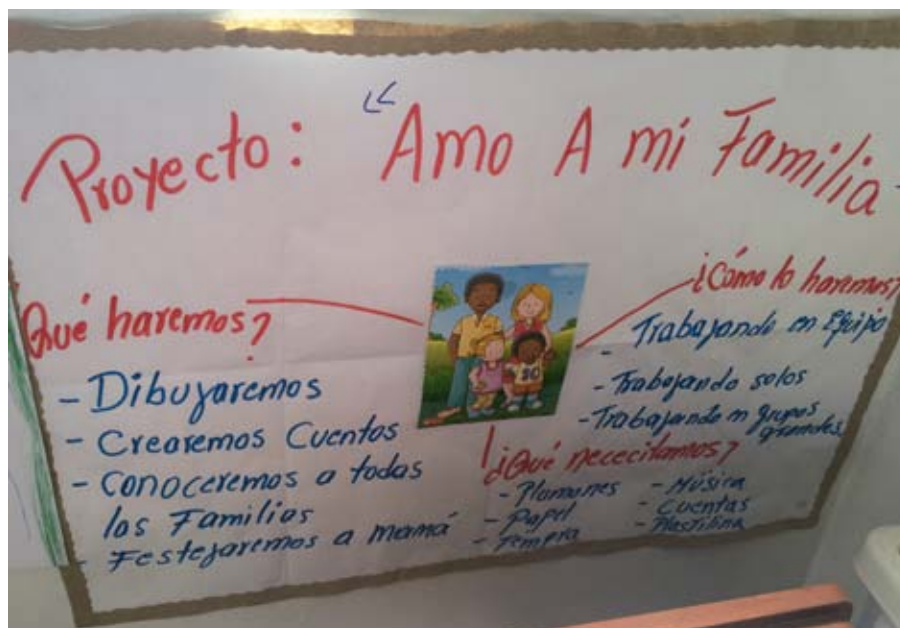 Proyecto: "Amo A mi Familia
Qué haremos?
- Dibujaremos
- Crearemos Cuentos
- Conoceremos a todas
las Familias
- Festejaremos a mamá
¿Cómo lo haremos?
- Trabajando en Equipo
- Trabajando solos
- Trabajando en grupos
grandes
¿Qué nececitamos?
- Plumones
- Papel
- Tempra
- Música
- Cuentas
- Plastilina
80